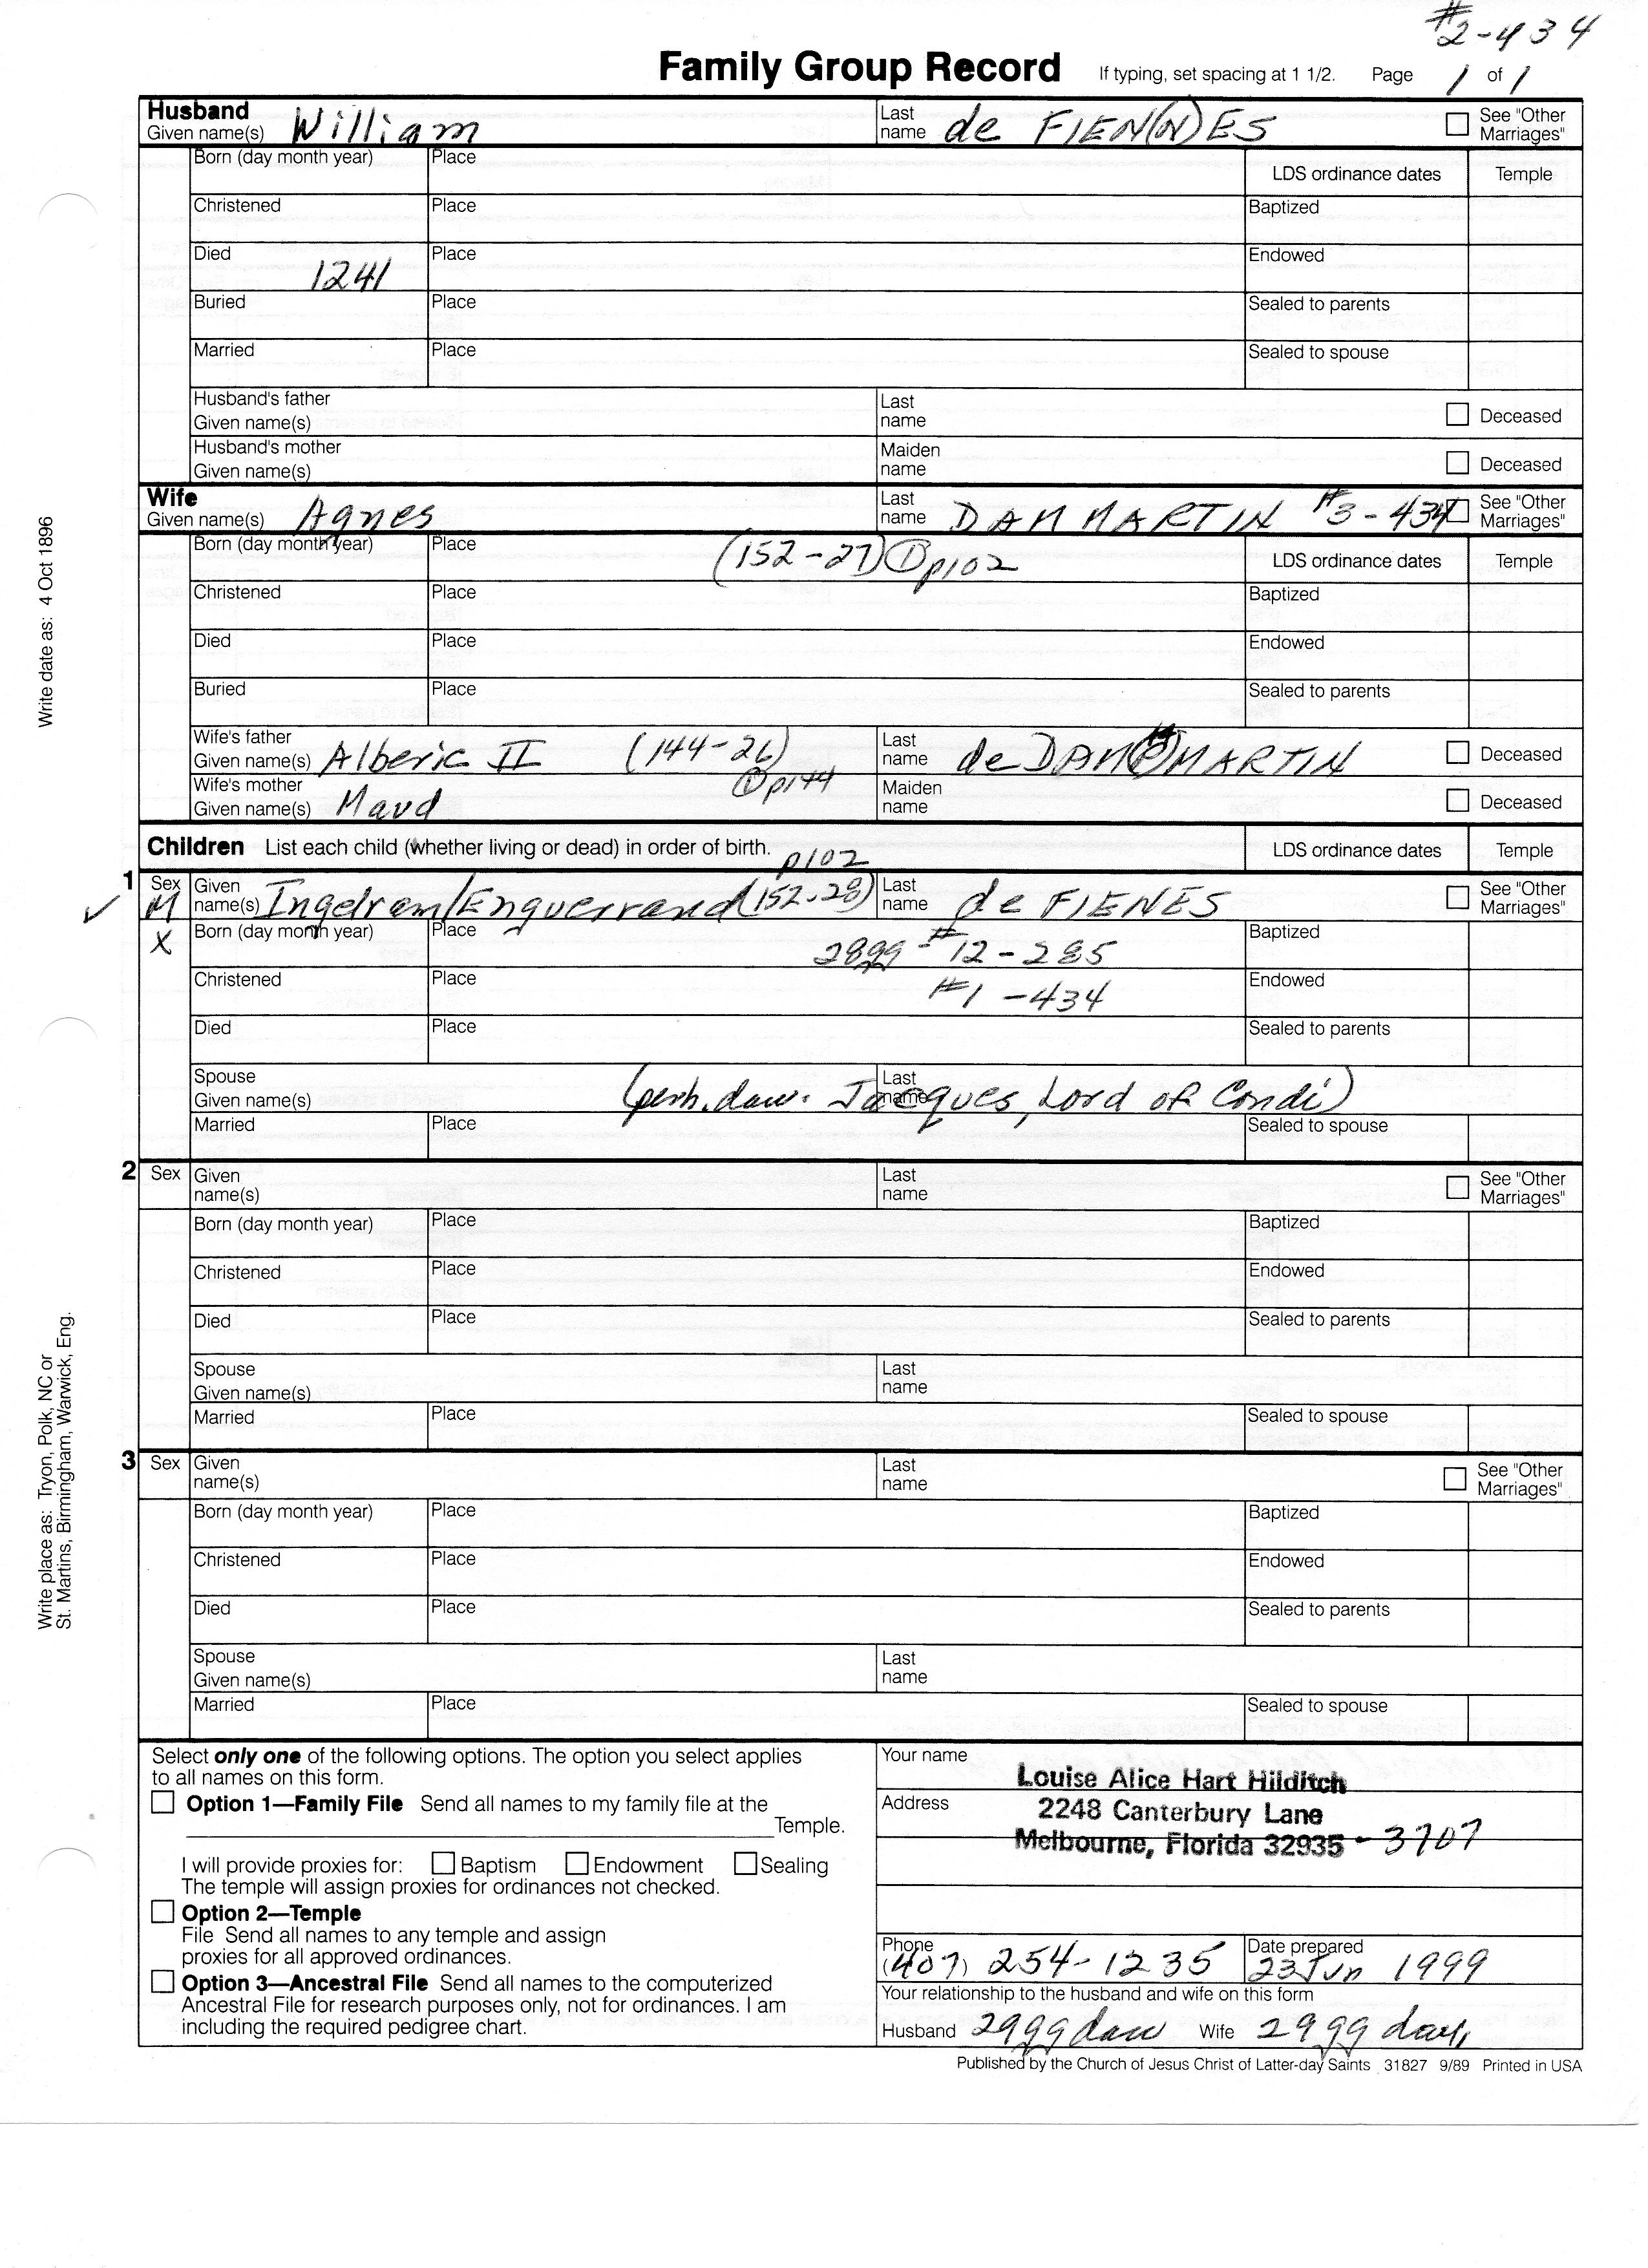 #2-434
Family Group Record If typing, set spacing at 1 1/2. Page 1 of 1
Husband
Given name(s) William Last name de FIEN(N)ES See "Other Marriages"
Born (day month year) Place LDS ordinance dates Temple
Christened Place Baptized
Died 1241 Place Endowed
Buried Place Sealed to parents
Married Place Sealed to spouse
Husband's father
Given name(s) Last name Deceased
Husband's mother
Given name(s) Maiden name Deceased
Wife
Given name(s) Agnes Last name DAMMARTIN #3-434 See "Other Marriages"
Born (day month year) Place (152-27) ① p102 LDS ordinance dates Temple
Christened Place Baptized
Died Place Endowed
Buried Place Sealed to parents
Wife's father
Given name(s) Alberic II (144-26) Last name de DAM(P)MARTIN Deceased
① p144
Wife's mother
Given name(s) Maud Maiden name Deceased
Children List each child (whether living or dead) in order of birth. LDS ordinance dates Temple
p102
1 Sex M Given name(s) Ingelram/Enguerrand (152-28) Last name de FIENES See "Other Marriages"
X Born (day month year) Place 28gg - #12-285 Baptized
Christened Place #1-434 Endowed
Died Place Sealed to parents
Spouse
Given name(s) Last name (perh. daw. Jacques, Lord of Condi)
Married Place Sealed to spouse
2 Sex Given name(s) Last name See "Other Marriages"
Born (day month year) Place Baptized
Christened Place Endowed
Died Place Sealed to parents
Spouse
Given name(s) Last name
Married Place Sealed to spouse
3 Sex Given name(s) Last name See "Other Marriages"
Born (day month year) Place Baptized
Christened Place Endowed
Died Place Sealed to parents
Spouse
Given name(s) Last name
Married Place Sealed to spouse
Select only one of the following options. The option you select applies
to all names on this form.
Option 1—Family File Send all names to my family file at the
Temple.
I will provide proxies for: Baptism Endowment Sealing
The temple will assign proxies for ordinances not checked.
Option 2—Temple
File Send all names to any temple and assign
proxies for all approved ordinances.
Option 3—Ancestral File Send all names to the computerized
Ancestral File for research purposes only, not for ordinances. I am
including the required pedigree chart.
Your name Louise Alice Hart Hilditch
Address 2248 Canterbury Lane
Melbourne, Florida 32935-3707
Phone (407) 254-1235 Date prepared 23 Jun 1999
Your relationship to the husband and wife on this form
Husband 29gg daw Wife 29gg daw,
Published by the Church of Jesus Christ of Latter-day Saints 31827 9/89 Printed in USA
Write date as: 4 Oct 1896
Write place as: Tryon, Polk, NC or
St. Martins, Birmingham, Warwick, Eng.